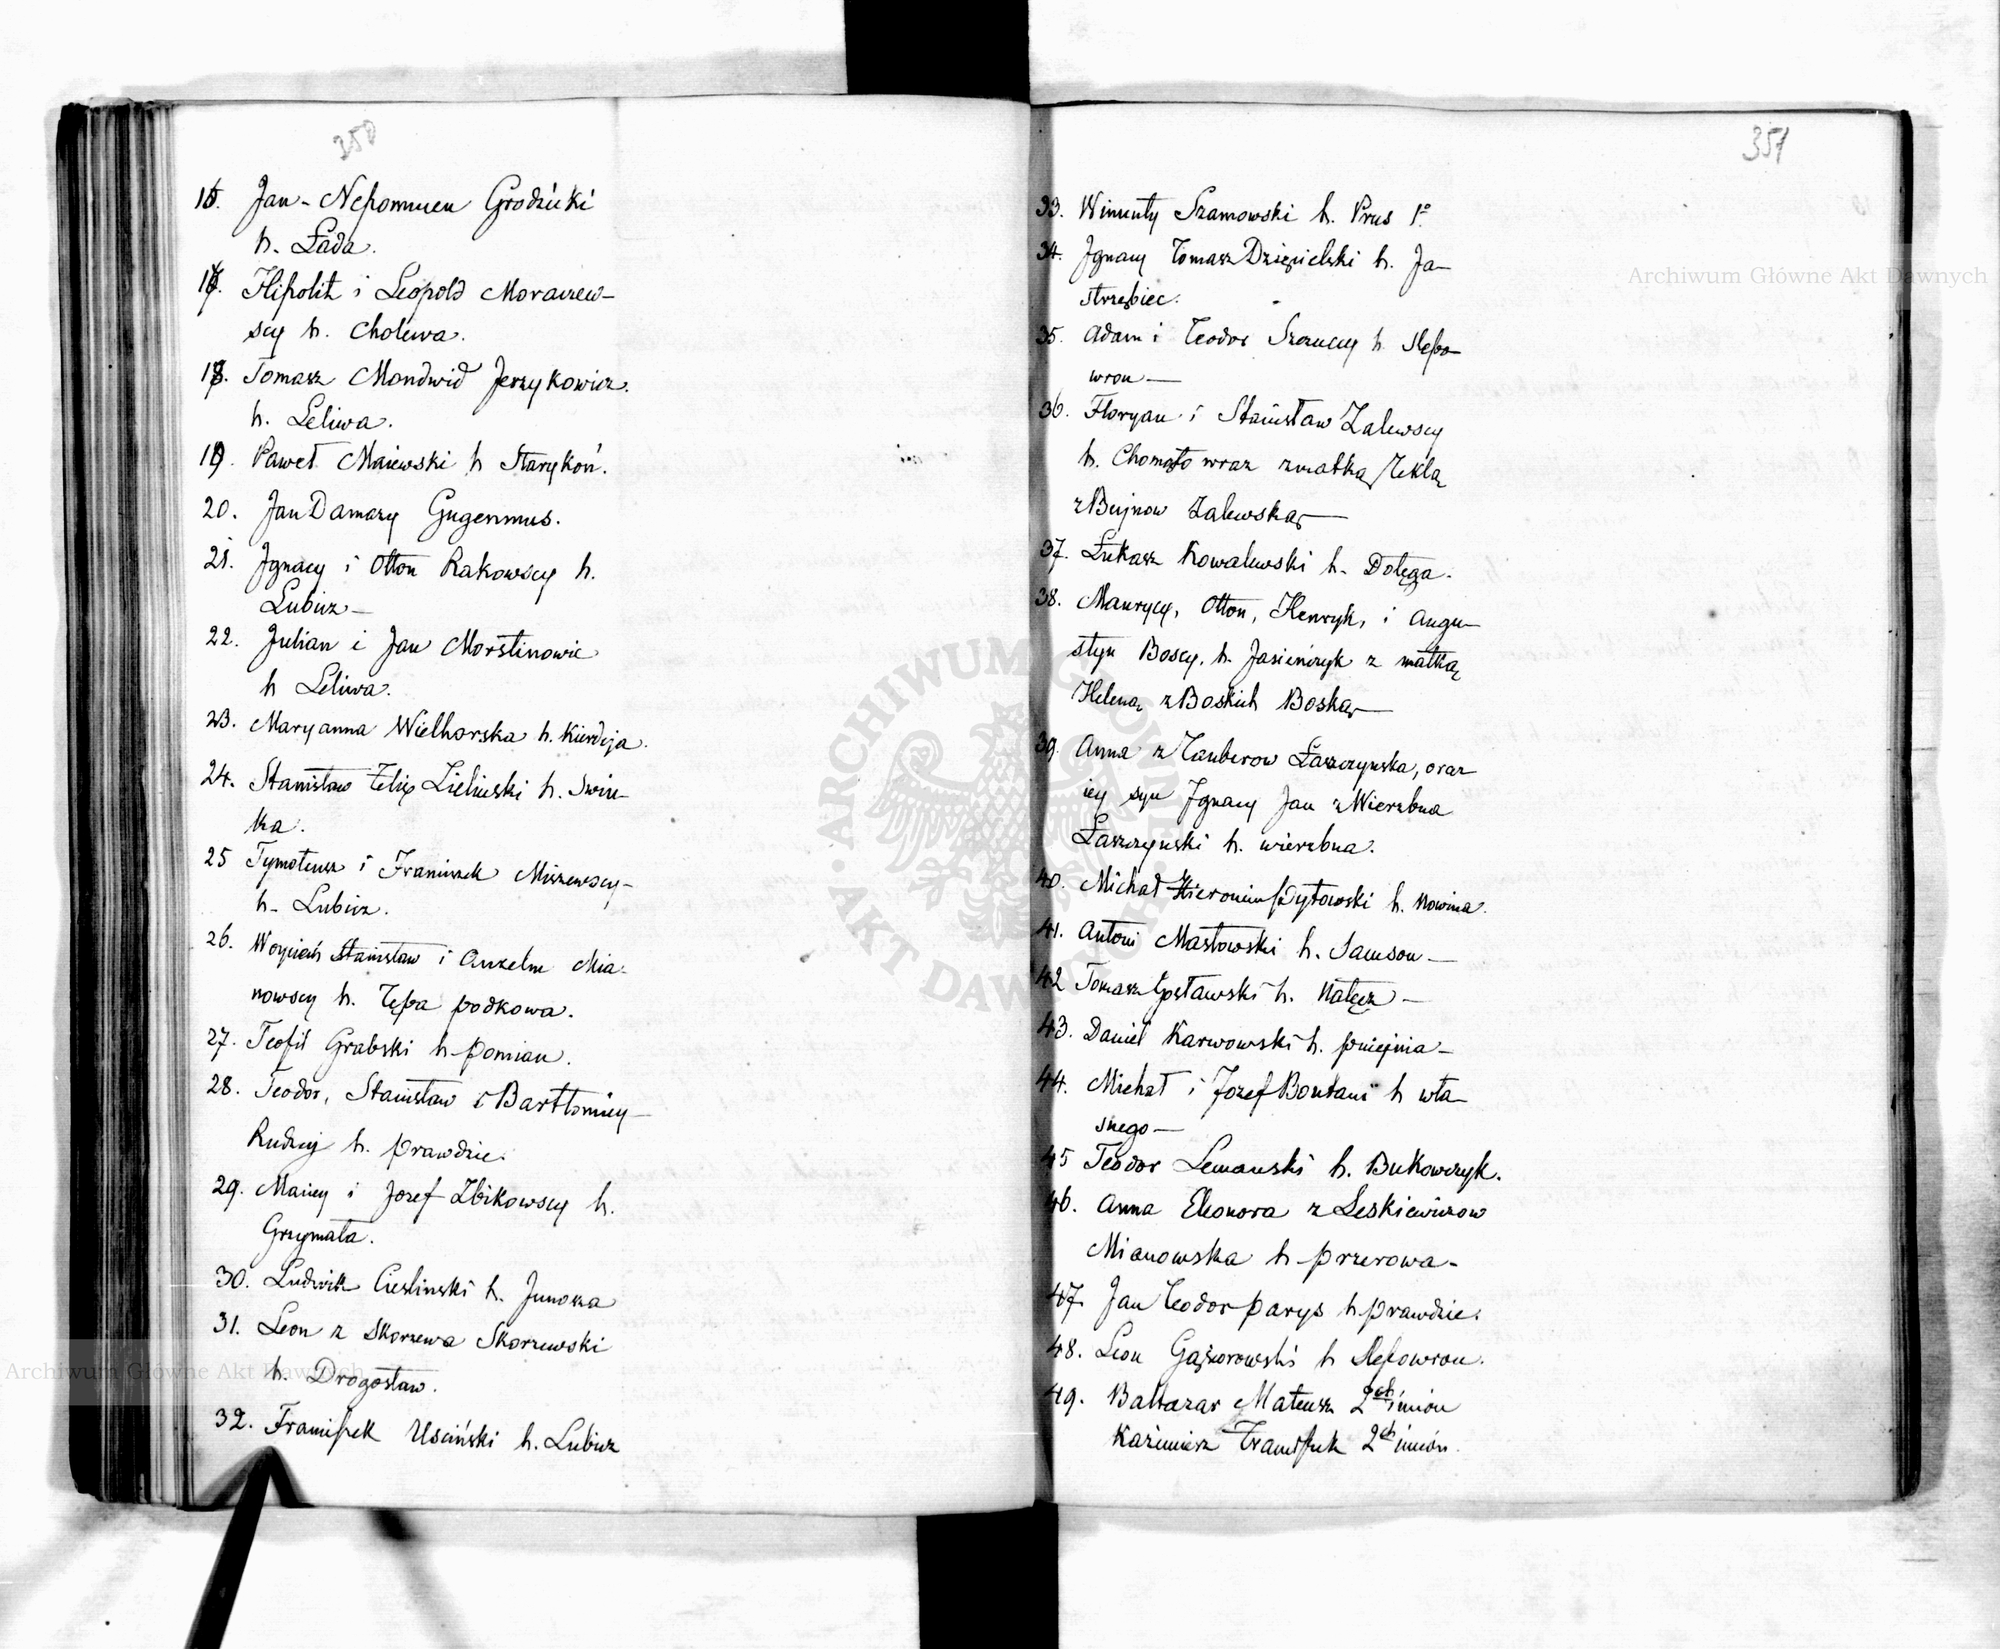 350
16. Jan-Nepomucen Grodzicki
h. Łada.
17. Hipolit i Leopold Moraczew-
scy h. Cholewa.
18. Tomasz Mondwid Jerzykowicz.
h. Leliwa.
19. Paweł Maiewski h Starykoń.
20. Jan Damazy Gugenmus.
21. Jgnacy i Otton Rakowscy h.
Lubicz—
22. Julian i Jan Morstinowie
h Leliwa.
23. Maryanna Wielhorska h. Kierdeja.
24. Stanisław Felix Zieliński h. Swin-
ka.
25 Tymoteusz i Franciszek Miszewscy-
h- Lubicz.
26. Woyciech Stanisław i Anzelm Mia-
nowscy h. Tępa podkowa.
27. Teofil Grabski h- Pomian.
28. Teodor, Stanisław i Bartłomiey—
Rudzcy h. Prawdzic.
29. Maciey i Jozef Zbikowscy h.
Grzymała.
30. Ludwik Ciesliński h. Junosza
31. Leon z Skorzewa Skorzewski
h. Drogosław.
32. Franciszek Usciński h. Lubicz
351
33. Wincenty Szamowski h. Prus 1º
34. Jgnacy Tomasz Dzięgielski h. Ja-
strzębiec.
35. Adam i Teodor Szczuccy h. Slepo-
wron—
36. Floryan i Stanisław Zalewscy
h. Chomąto wraz z matką Teklą
z Bujnow Zalewską—
37. Łukasz Kowalewski h- Dołęga.
38. Maurycy, Otton, Henryk, i Augu-
styn Boscy, h. Jasieńczyk z matką
Heleną z Boskich Boską—
39. Anna z Tauberow Łaszczynska, oraz
iey syn Jgnacy Jan z Wierzbna
Łaszczynski h. wierzbna.
40. Michał Hieronim Pytowski h. Nowina.
41. Antoni Masłowski h. Samson—
42 Tomasz Gosławski h. Nałęcz—
43. Daniel Karwowski h. Pniejnia-
44. Michał i Jozef Bontani h wła-
snego—
45 Teodor Lemanski h. Bukowczyk.
46. Anna Eleonora z Leskiewiczow
Mianowska h- Przerowa-
47. Jan Teodor Parys h Prawdzic.
48. Leon Gąsiorowski h Slepowron.
49. Baltazar Mateusz 2ch imion
Kaźimierz Franciszek 2ch imion.
Archiwum Główne Akt Dawnych
Archiwum Główne Akt Dawnych
ARCHIWUM GŁÓWNE AKT DAWNYCH